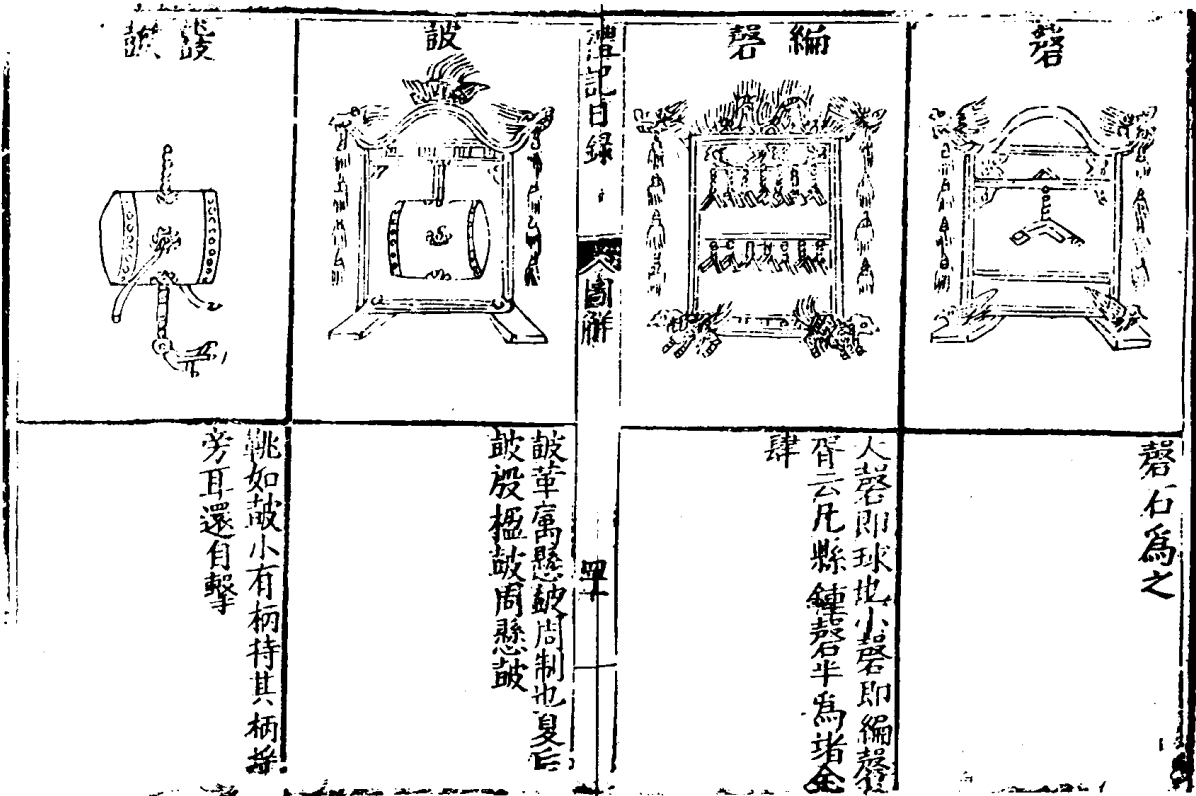 磬
磬石爲之
編磬
大磬即球也小磬即編磬
胥云凡縣鍾磬半爲堵全
肆
禮記目錄
圖解
四十
鼓
鼓革爲懸鼓周制也夏后
鼓殷楹鼓周懸鼓
鼗鼓
鞉如鼓小有柄持其柄搖
旁耳還自擊